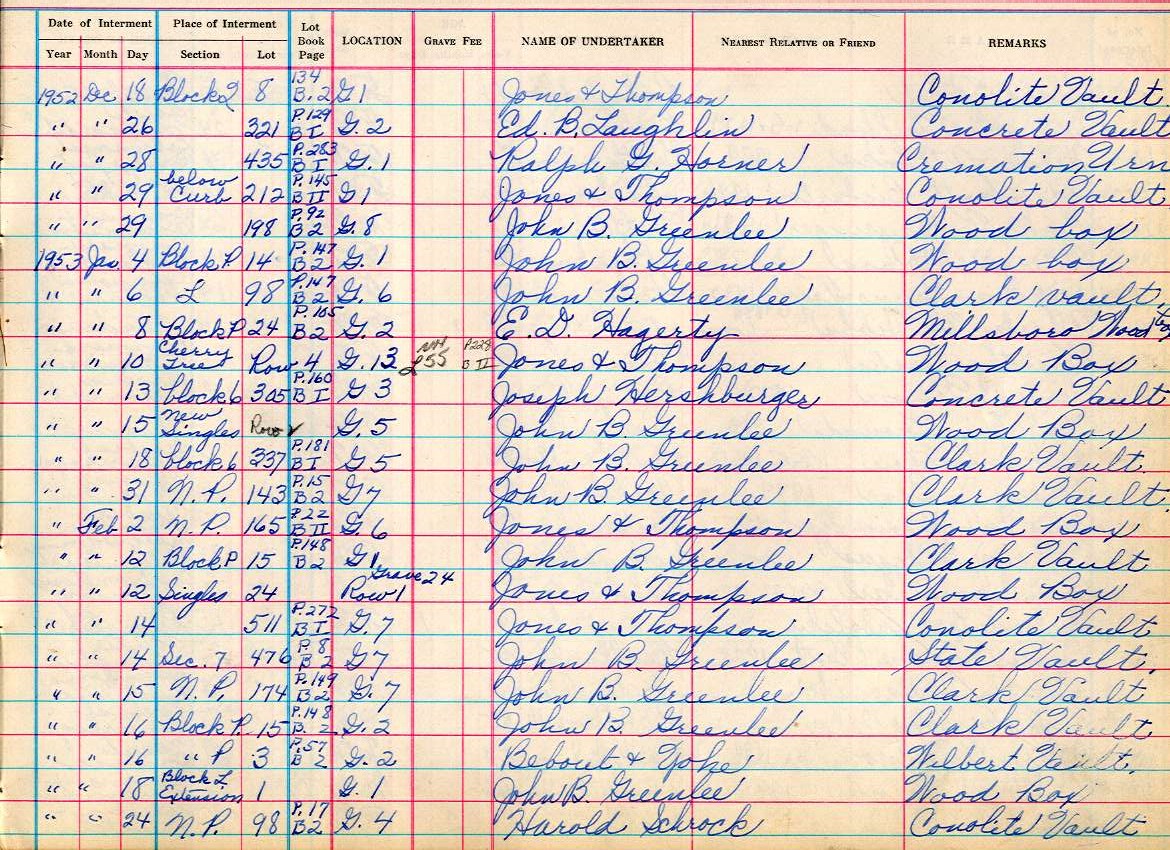 Date of Interment Place of Interment Lot Book Page LOCATION GRAVE FEE NAME OF UNDERTAKER NEAREST RELATIVE OR FRIEND REMARKS
Year Month Day Section Lot
1952 Dec 18 Block 2 8 134 B. 2 G 1 Jones & Thompson Conolite Vault.
" " 26 321 P. 129 B I G. 2 Ed. B. Laughlin Concrete Vault
" " 28 435 P. 283 B I G. 1 Ralph G. Horner Cremation Urn
" " 29 below Curb 212 P. 145 B II G 1 Jones & Thompson Conolite Vault
" " 29 198 P. 92 B 2 G. 8 John B. Greenlee Wood box
1953 Jan 4 Block P. 14 P. 147 B 2 G. 1 John B. Greenlee Wood box
" " 6 L 98 P. 147 B 2 G. 6 John B. Greenlee Clark vault.
" " 8 Block P 24 P. 105 B2 G. 2 E. D. Hagerty Millsboro Wood
" " 10 Cherry Tree Row 4 G. 13 L 55 P228 B II Jones & Thompson Wood Box
" " 13 block 6 305 P. 160 B I G 3 Joseph Hershburger Concrete Vault
" " 15 New Singles Row G. 5 John B Greenlee Wood Box
" " 18 block 6 337 P. 181 B I G 5 John B. Greenlee Clark Vault.
" " 31 N. P. 143 P. 15 B2 G 7 John B. Greenlee Clark Vault.
" Feb 2 N. P. 165 P. 22 B II G. 6 Jones & Thompson Wood Box
" " 12 Block P 15 P. 148 B 2 G 1 John B. Greenlee Clark Vault
" " 12 Singles 24 Grave 24 Row 1 Jones & Thompson Wood Box
" " 14 511 P. 272 B I G. 7 Jones & Thompson Conolite Vault
" " 14 Sec. 7 476 P. 8 B 2 G 7 John B. Greenlee State Vault.
" " 15 N. P. 174 P. 149 B 2 G. 7 John B. Greenlee Clark Vault
" " 16 Block P. 15 P. 148 B. 2 G. 2 John B. Greenlee Clark Vault
" " 16 " P 3 P. 57 B 2 G. 2 Bebout & Yohe Wilbert Vault.
" " 18 Block L Extension 1 G. 1 John B. Greenlee Wood Box
" " 24 N. P. 98 P. 17 B2 G. 4 Harold Schrock Conolite Vault